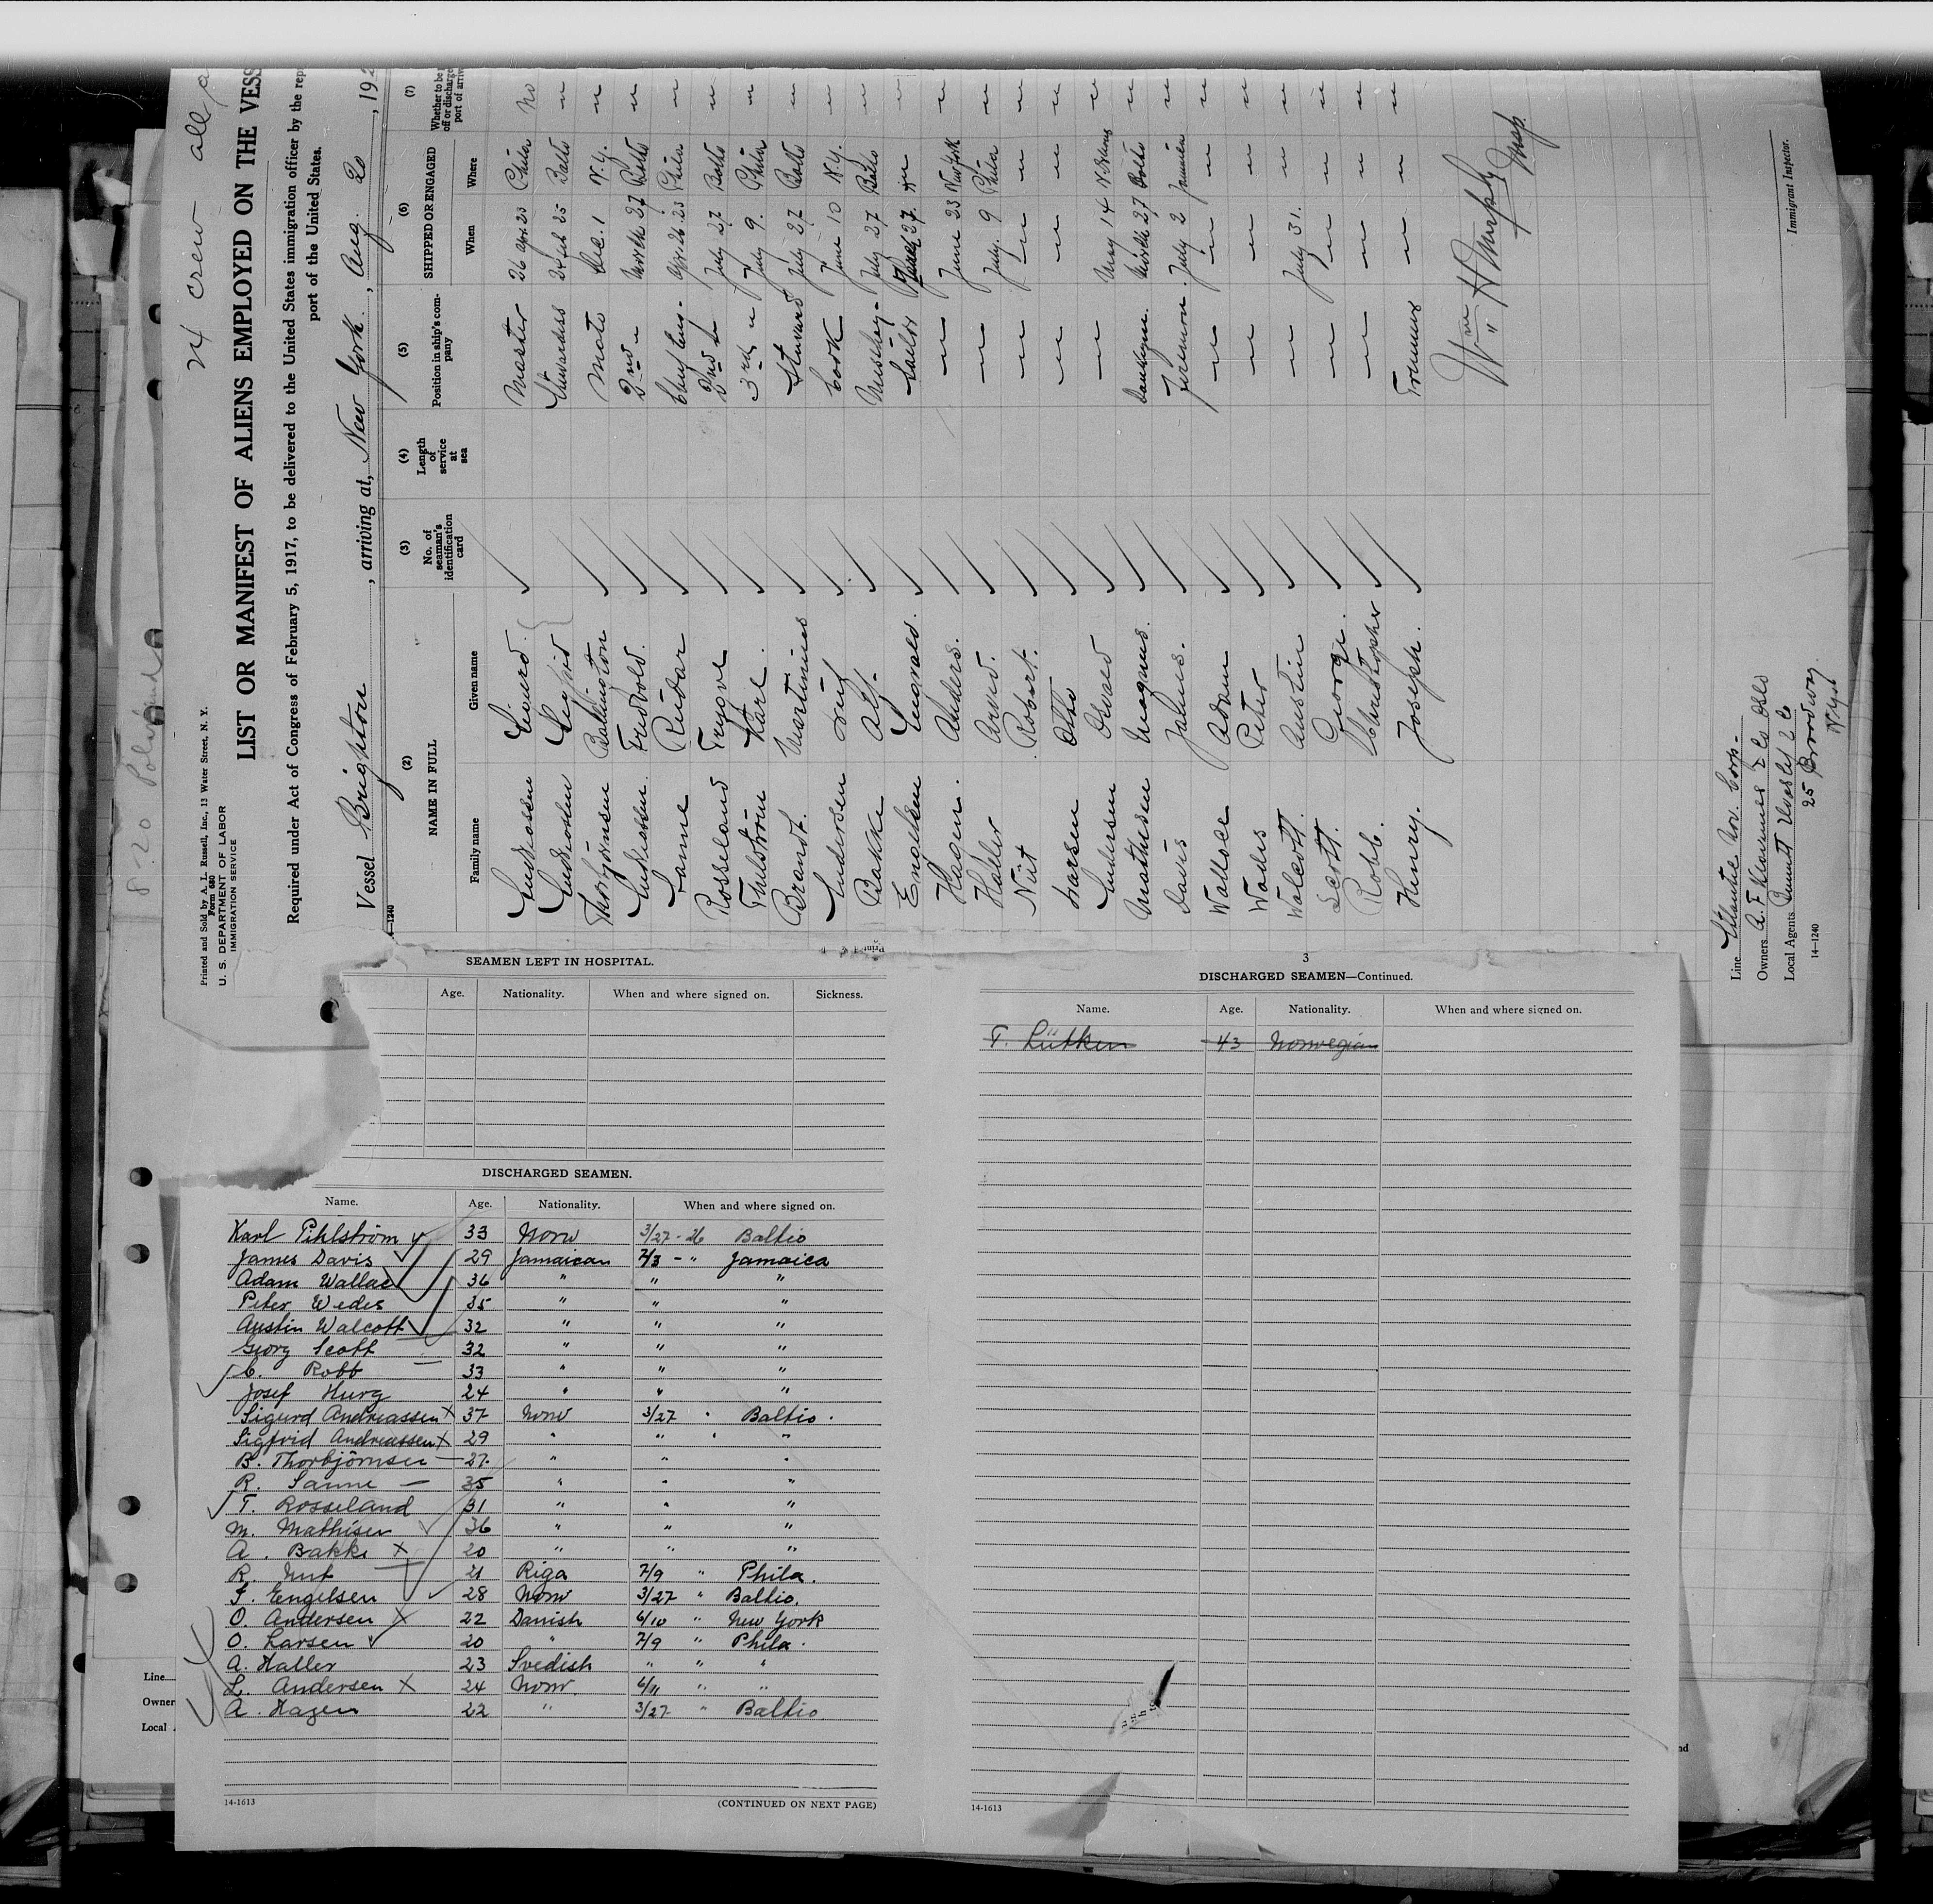 8-20
24 crew all
Printed and Sold by A. L. Russell, Inc., 13 Water Street, N. Y.
Form 680
U. S. DEPARTMENT OF LABOR
IMMIGRATION SERVICE
LIST OR MANIFEST OF ALIENS EMPLOYED ON THE VESS
Required under Act of Congress of February 5, 1917, to be delivered to the United States immigration officer by the rep
port of the United States.
Vessel Brighton, arriving at, New York, Aug. 20, 192
14-1240
(2) (3) (4) (5) (6) (7)
NAME IN FULL No. of seaman's identification card Length of service at sea Position in ship's company SHIPPED OR ENGAGED Whether to be off or discharge port of arriv
Family name Given name When Where
Andreassen Sigurd. Master 26 Apr. 23 Phila No
Andreassen Sigfrid Stewardess Feb 25 Balto "
Thorbjörnsen Baldington Mate Dec. 1 N.Y. "
Andreassen. Fredvold. 2nd " March 27 Balto "
Sanne Reidar Chief Eng. Apr. 26. 23 Phila "
Rosseland Trygve 2nd " July 27 Balto "
Pihlström Karl. 3rd " July 9. Phila "
Brandt. Martinius Steward July 27 Balto "
Andersen Cook June 10 N.Y. "
Bakke Alf. Messboy July 27 Balto "
Engelsen Ingvald. Sailor March 27. " "
Hagen. Anders. " June 23 New York "
Haller Arvid. " July. 9 Phila "
Nut Robert. " " " "
Larsen Otto " " " "
Andersen " May 14 "
Mathisen Magnus. Donkeyman. March 27 Balto "
Davis James. Fireman. July 2 Jamaica "
Wallace Adam " " " "
Wades Peter " " " "
Walcott. Austin " July 31. " "
Scott. George. " " " "
Robb. Christopher " " " "
Henry. Joseph. Trimmer " " "
Wm H Murphy
Insp.
Line Atlantic Nav. Corp.
Owners A. F. Klaveness & Co Oslo
Local Agents Bennett & Co
25 Broadway
N.Y.
14-1240
Immigrant Inspector.
SEAMEN LEFT IN HOSPITAL.
Age. Nationality. When and where signed on. Sickness.
DISCHARGED SEAMEN.
Name. Age. Nationality. When and where signed on.
Karl Pihlström 33 Norw 3/27 - 26 Baltio
James Davis 29 Jamaican 7/3 - " Jamaica
Adam Wallac 36 " " "
Peter Wedes 35 " " "
Austin Walcott 32 " " "
Georg Scott 32 " " "
C. Robb 33 " " "
Josef Hurg 24 " " "
Sigurd Andreassen X 37 Norw 3/27 " Baltio.
Sigfrid Andreassen X 29 " " " "
B. Thorbjörnsen 27. " " "
R. Sanne 35 " " "
T. Rosseland 31 " " "
M. Mathisen 36 " " "
A. Bakke X 20 " " "
R. Nut 21 Riga 7/9 " Phila.
I. Engelsen 28 Norw 3/27 " Baltio.
O. Andersen X 22 Danish 6/10 " New York
O. Larsen 20 " 7/9 " Phila.
A. Haller 23 Svedish " " "
L. Andersen X 24 Norw. 6/11 " "
A. Hagen 22 " 3/27 " Baltio
14-1613 (CONTINUED ON NEXT PAGE)
3
DISCHARGED SEAMEN—Continued.
Name. Age. Nationality. When and where signed on.
T. Lütken 43 Norwegian
14-1613
Line
Owner
Local
nd